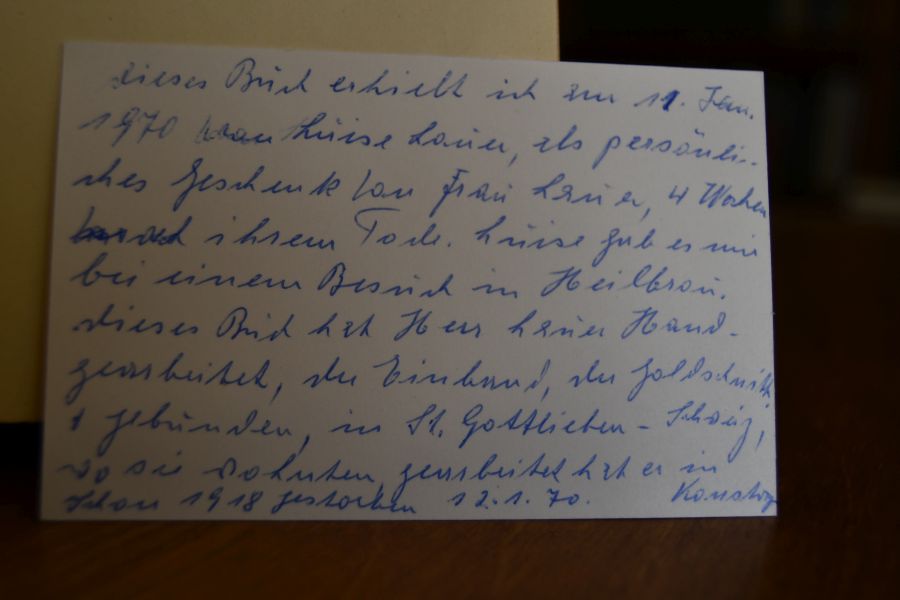 dieses Buch erhielt ich am 11. Jan.
1970 von Luise Lauer, als persönli-
ches Geschenk von Frau Lauer, 4 Wochen
nach ihrem Tode. Luise gab es mir
bei einem Besuch in Heilbron.
dieses Buch hat Herr Lauer Hand-
gearbeitet, der Einband, der Goldschnitt
+ gebunden, in St. Gottlieben - Schweiz,
wo sie wohnten, gearbeitet hat er in
Schon 1918 gestorben 12.1.70. Konstanz